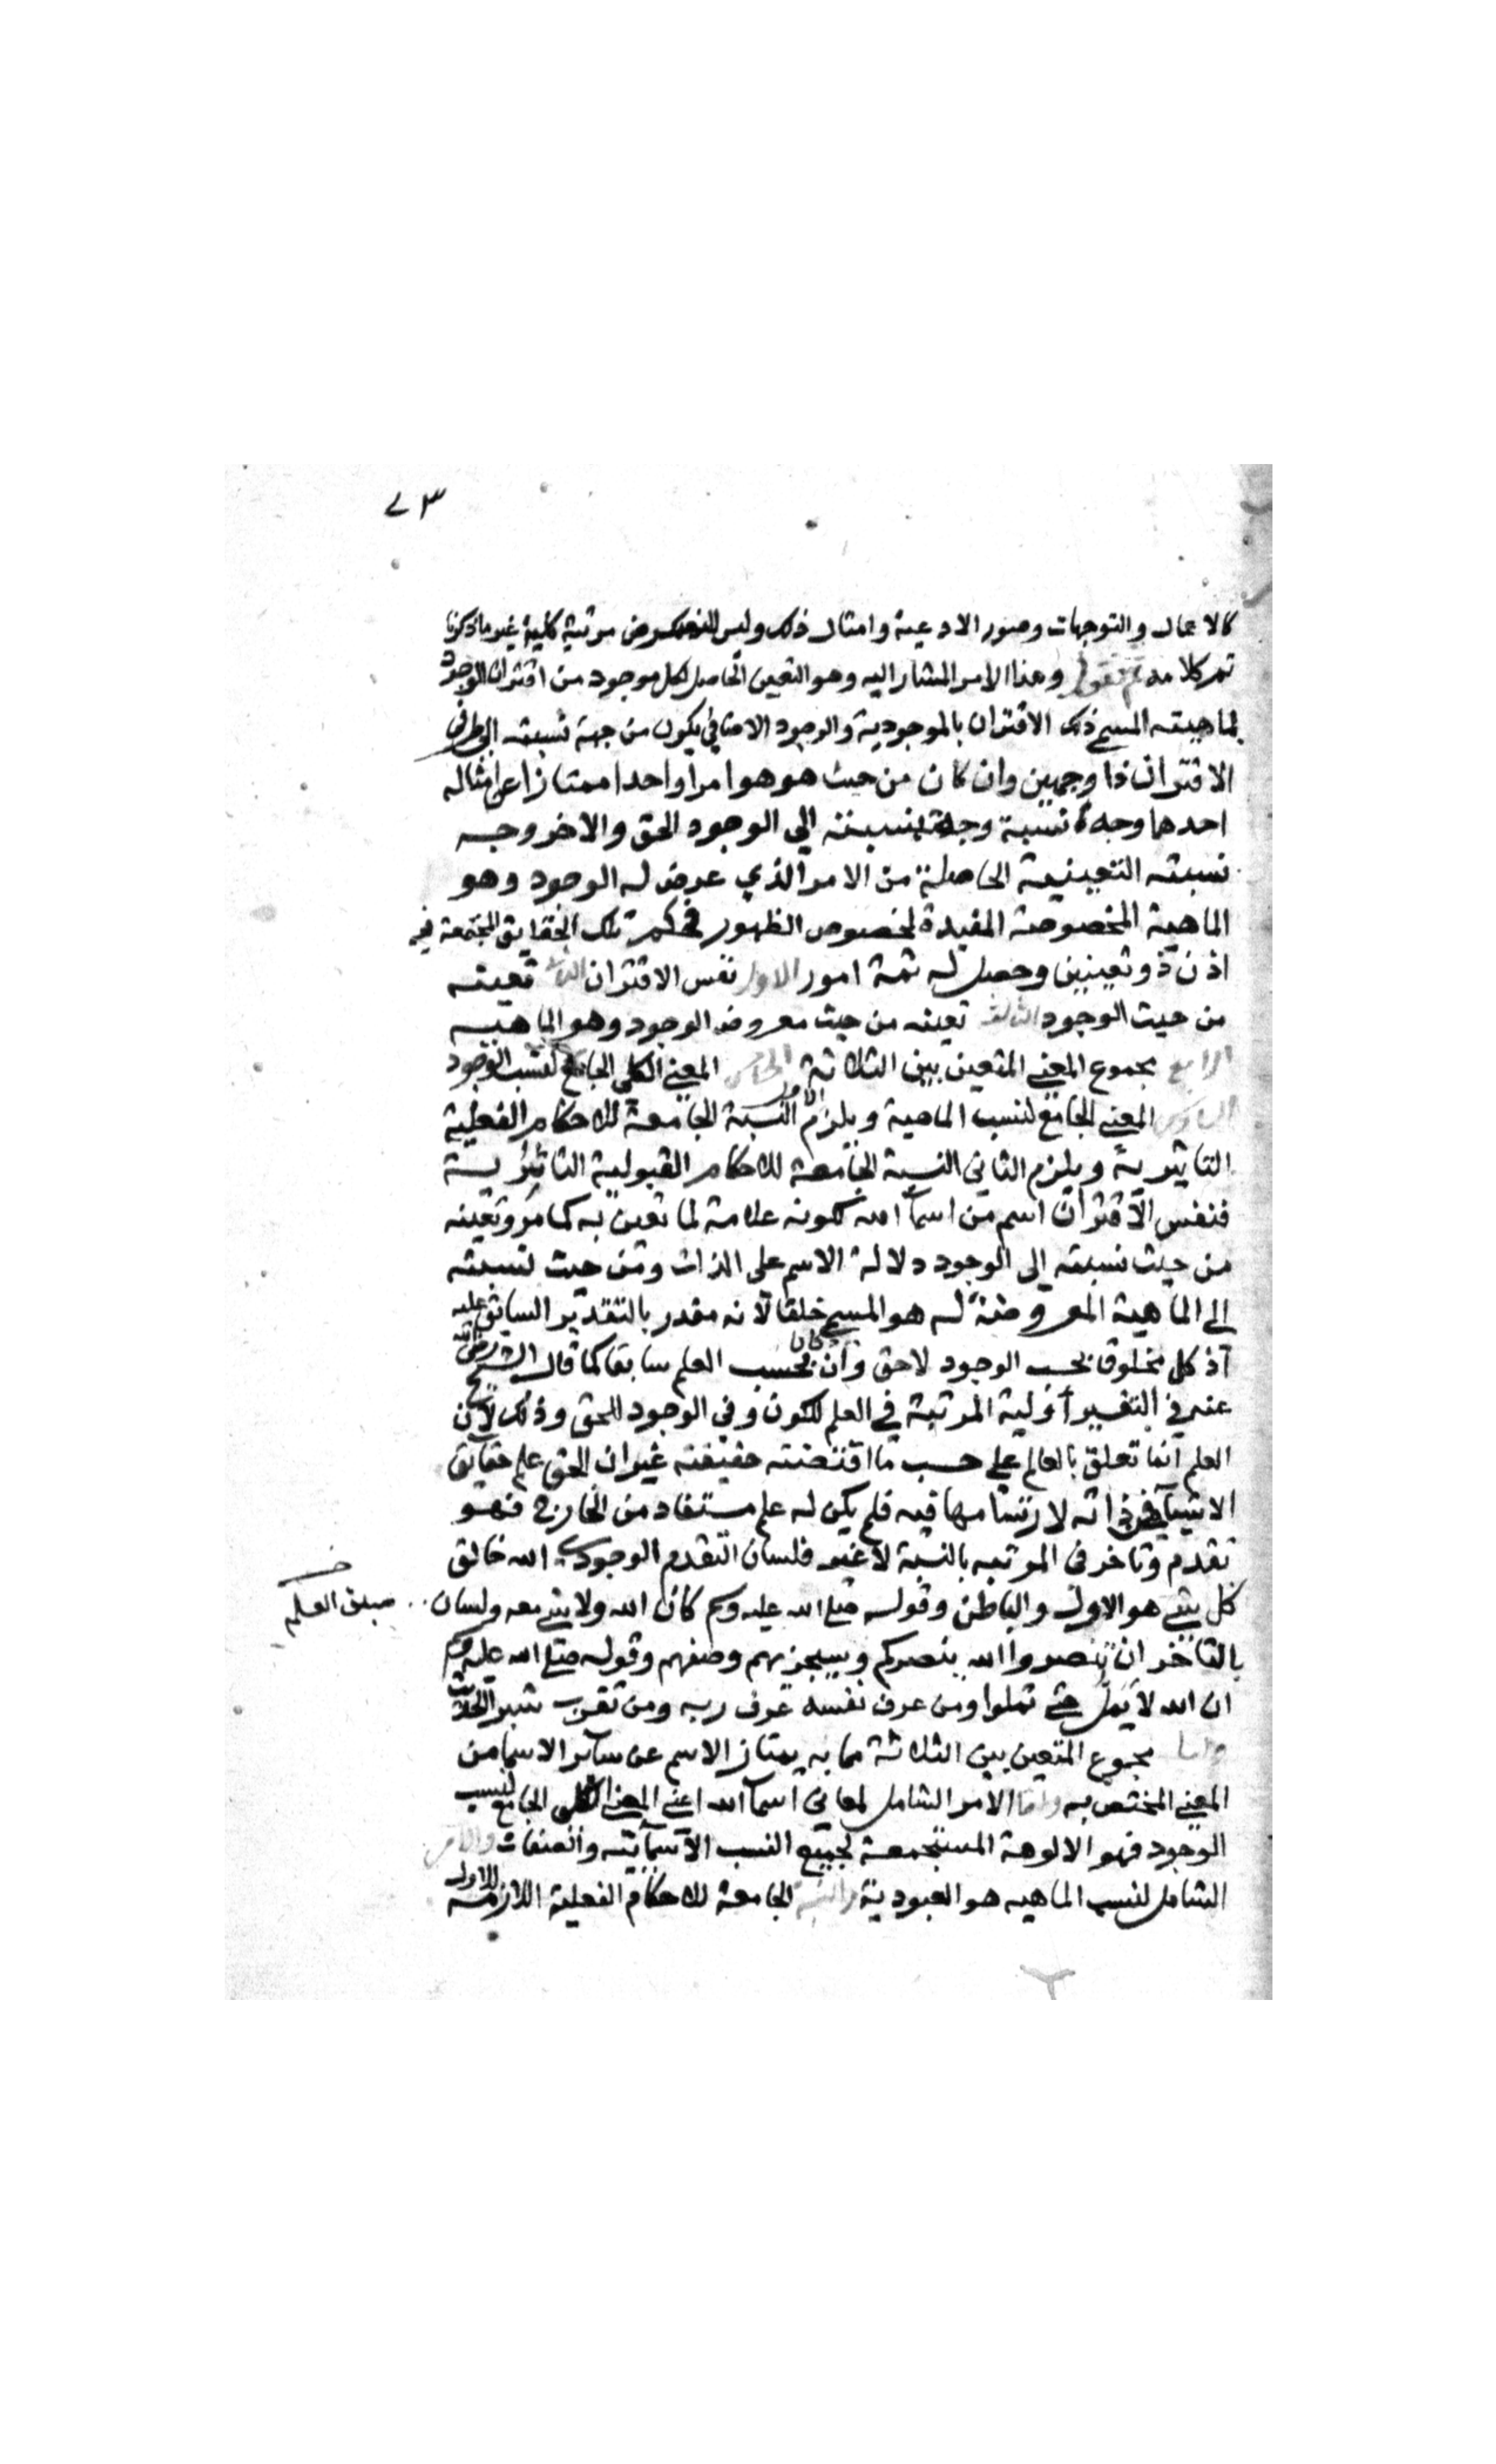 ٧٣
كالاعمال والتوجهات وصور الادعية وامثال ذلك وليس للنصوص مرتبة كلية غير ما ذكرنا
تم كلامه ثم نقول وهذا الامر المشار اليه وهو التعين الحاصل لكل موجود من اقتران الوجود
لماهيته المسمى ذلك الاقتران بالموجودية والوجود الاضافي يكون من جهة نسبته الى طرفي
الاقتران ذا وجهين وان كان من حيث هو هو امرا واحدا ممتازا عن امثاله
احدهما وجه نسبة بنسبته الى الوجود الحق والاخر وجه
نسبته التعينية الحاصلة من الامر الذي عرض له الوجود وهو
الماهية المخصوصة المفيدة لخصوص الظهور في تلك الحقايق المجتمعة فهو
اذن ذو تعينين وحصل له ثمة امور الاول نفس الاقتران الثاني تعينه
من حيث الوجود الثالث تعينه من حيث معروض الوجود وهو الماهية
الرابع مجموع المعنى المتعين بين الثلاثة الخامس المعنى الكلى الجامع لنسب الوجود
السادس المعنى الجامع لنسب الماهية ويلزم الاول النسبة الجامعة للاحكام الفعلية
التاثيرية ويلزم الثاني النسبة الجامعة للاحكام القبولية التاثرية
فنفس الاقتران اسم من اسماء الله لكونه علامة لما تعين به كما مر وتعينه
من حيث نسبته الى الوجود دلالة الاسم على الذات ومن حيث نسبته
الى الماهية المعروضة له هو المسمى خلقا لانه مقدر بالتقدير السابق عليه
اذ كل مخلوق بحسب الوجود لاحق وان كان بحسب العلم سابقا كما قال الشيخ رضى الله
عنه في التفسير اولية المرتبة في العلم للكون وفي الوجود للحق وذلك لان
العلم انما تعلق بالعالم على حسب ما اقتضته حقيقته غير ان الحق علم حقايق
الاشياء من ذاته لارتسامها فيه فلم يكن له علم مستفاد من الخارج فهو
تقدم وتاخر في المرتبه بالنسبة لا غير فلسان التقدم الوجودي الله خالق
كل شئ هو الاول والباطن وقوله صلى الله عليه وسلم كان الله ولا شئ معه ولسان
سبق العلم
بالتاخر ان تنصروا الله ينصركم وسيجزيهم وصفهم وقوله صلى الله عليه وسلم
ان الله لا يمل حتى تملوا ومن عرف نفسه عرف ربه ومن تقرب شبرا الحديث
واما مجموع المتعين بين الثلاثة مما به يمتاز الاسم عن سائر الاسما من
المعنى المختص به واما الامر الشامل لمعاني اسماء الله اعني المعنى الكلى الجامع لنسب
الوجود فهو الالوهة المستجمعة لجميع النسب الاسمائية والصفات والامر
الشامل لنسب الماهيه هو العبودية والنسبة الجامعة للاحكام الفعلية اللازمة للاول